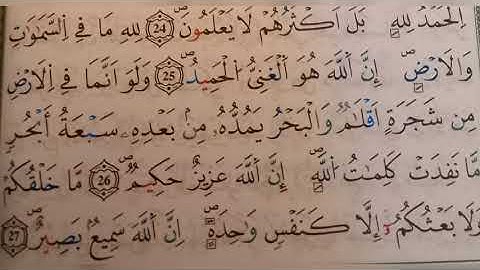 اِلْحَمْدُ لِلهِ بَلْ اَكْثَرُهُمْ لَا يَعْلَمُوْنَ 24 لِلهِ مَا فِي السَّمٰوٰتِ
وَالْاَرْضِ اِنَّ اللّٰهَ هُوَ الْغَنِيُّ الْحَمِيْدُ 25 وَلَوْ اَنَّمَا فِي الْاَرْضِ
مِنْ شَجَرَةٍ اَقْلَامٌ وَّالْبَحْرُ يَمُدُّهٗ مِنْۢ بَعْدِهٖ سَبْعَةُ اَبْحُرٍ
مَّا نَفِدَتْ كَلِمٰتُ اللّٰهِ اِنَّ اللّٰهَ عَزِيْزٌ حَكِيْمٌ 26 مَا خَلْقُكُمْ
وَلَا بَعْثُكُمْ اِلَّا كَنَفْسٍ وَّاحِدَةٍ اِنَّ اللّٰهَ سَمِيْعٌۢ بَصِيْرٌ 27